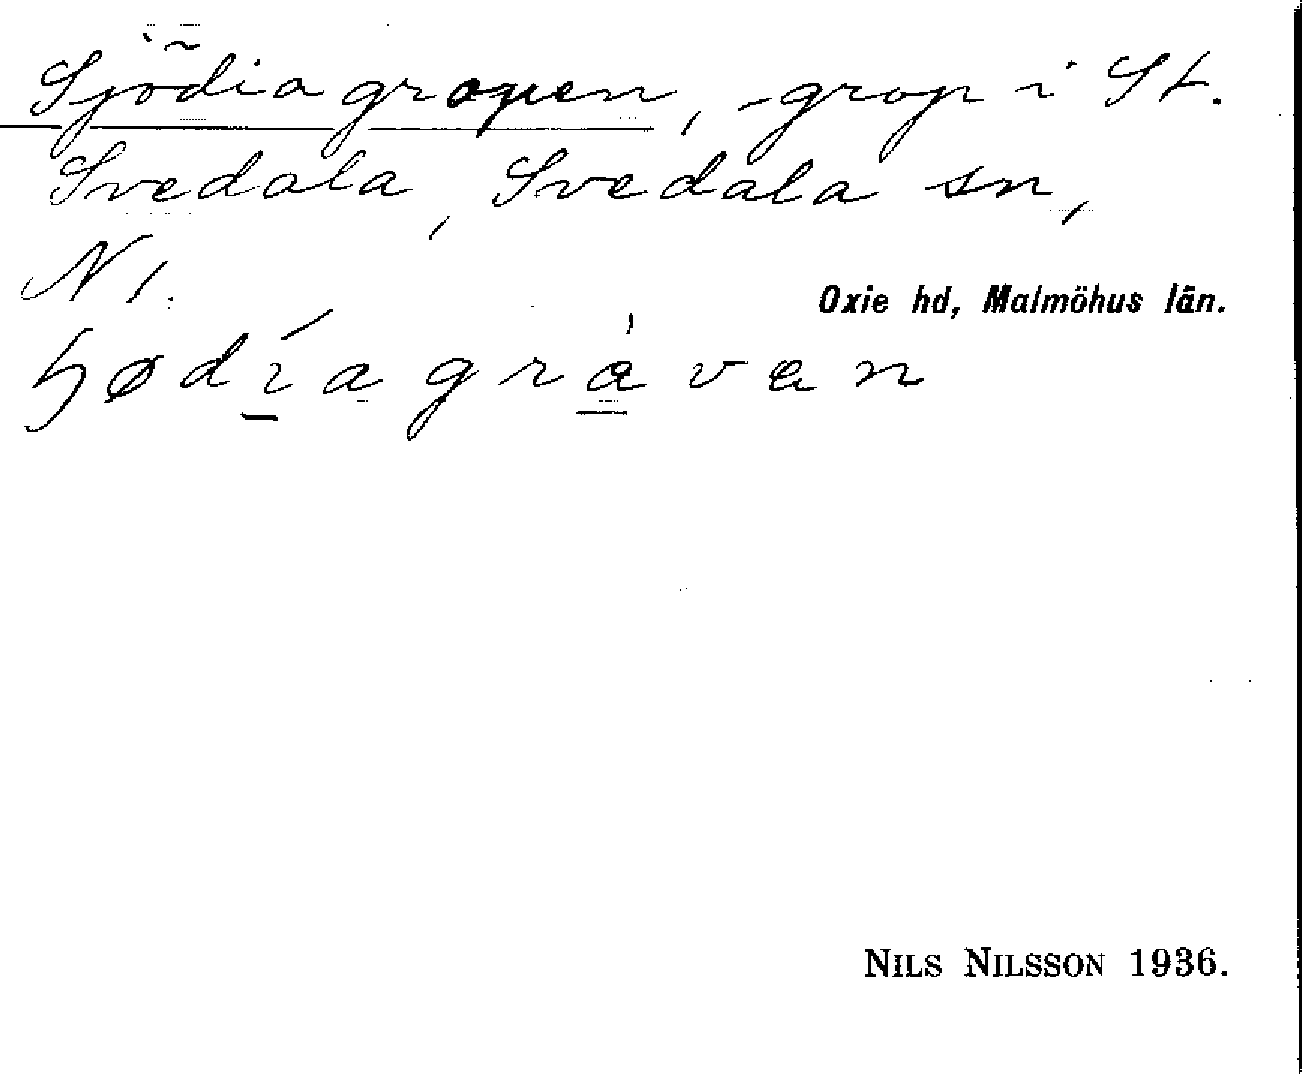 Sjödiagropen, -grop i St.
Svedala, Svedala sn,
N 1.
Oxie hd, Malmöhus län.
ꞕødíagrávan
NILS NILSSON 1936.